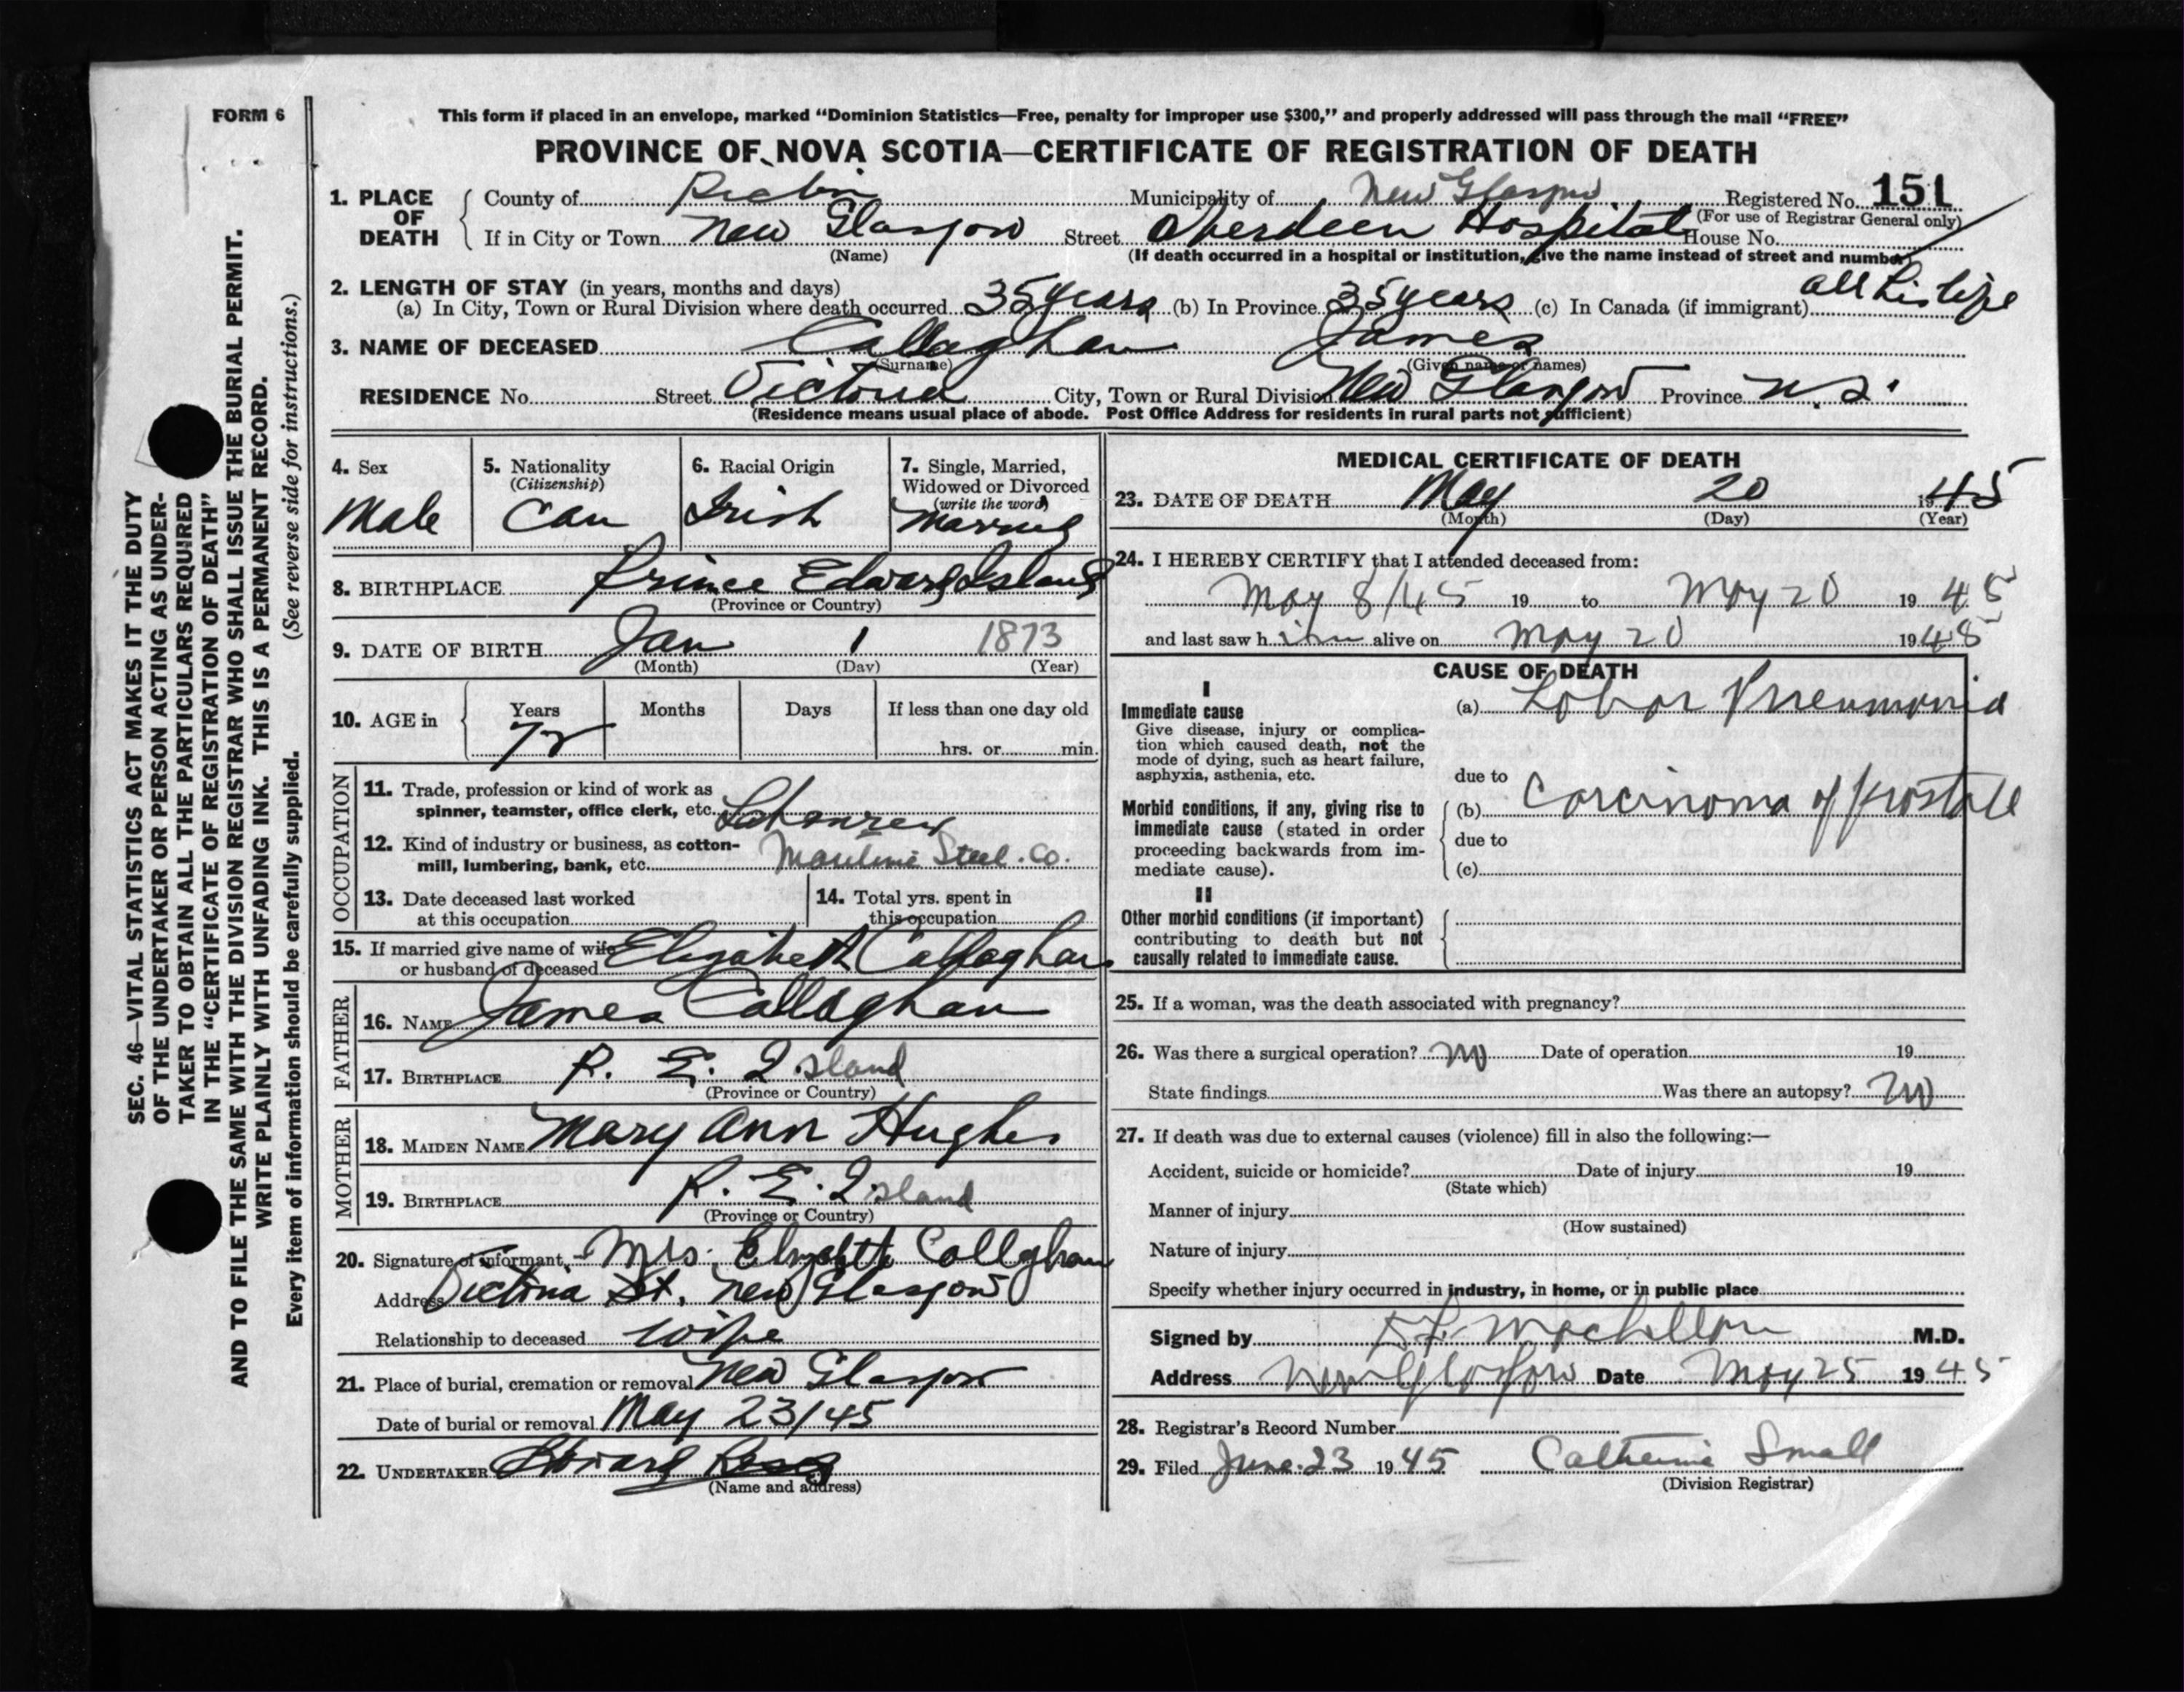 FORM 6
This form if placed in an envelope, marked “Dominion Statistics—Free, penalty for improper use $300,” and properly addressed will pass through the mail “FREE”
PROVINCE OF NOVA SCOTIA—CERTIFICATE OF REGISTRATION OF DEATH
1. PLACE OF DEATH
County of Pictou Municipality of New Glasgow Registered No. 151
(For use of Registrar General only)
If in City or Town New Glasgow Street Aberdeen Hospital House No.
(Name) (If death occurred in a hospital or institution, give the name instead of street and number)
2. LENGTH OF STAY (in years, months and days)
(a) In City, Town or Rural Division where death occurred 35 years (b) In Province 35 years (c) In Canada (if immigrant) all his life
3. NAME OF DECEASED Callaghan James
(Surname) (Given name or names)
RESIDENCE No. Street Victoria City, Town or Rural Division New Glasgow Province N.S.
(Residence means usual place of abode. Post Office Address for residents in rural parts not sufficient)
4. Sex
Male
5. Nationality
(Citizenship)
Can
6. Racial Origin
Irish
7. Single, Married,
Widowed or Divorced
(write the word)
Married
8. BIRTHPLACE Prince Edward Island
(Province or Country)
9. DATE OF BIRTH Jan 1 1873
(Month) (Day) (Year)
10. AGE in
Years Months Days If less than one day old
72 hrs. or min.
OCCUPATION
11. Trade, profession or kind of work as
spinner, teamster, office clerk, etc.
12. Kind of industry or business, as cotton-
mill, lumbering, bank, etc. Maritime Steel. Co.
13. Date deceased last worked
at this occupation
14. Total yrs. spent in
this occupation
15. If married give name of wife
or husband of deceased Elizabeth Callaghan
FATHER
16. NAME James Callaghan
17. BIRTHPLACE P. E. Island
(Province or Country)
MOTHER
18. MAIDEN NAME Mary Ann Hughes
19. BIRTHPLACE P. E. Island
(Province or Country)
20. Signature of informant Mrs. Elizabeth Callaghan
Address Victoria St. New Glasgow
Relationship to deceased wife
21. Place of burial, cremation or removal New Glasgow
Date of burial or removal May 23/45
22. UNDERTAKER
(Name and address)
MEDICAL CERTIFICATE OF DEATH
23. DATE OF DEATH May 20 1945
(Month) (Day) (Year)
24. I HEREBY CERTIFY that I attended deceased from:
May 8/45 19 to May 20 1945
and last saw him alive on May 20 1945
CAUSE OF DEATH
I
Immediate cause
Give disease, injury or complica-
tion which caused death, not the
mode of dying, such as heart failure,
asphyxia, asthenia, etc.
(a) Lobar Pneumonia
due to
Morbid conditions, if any, giving rise to
immediate cause (stated in order
proceeding backwards from im-
mediate cause).
(b) Carcinoma of prostate
due to
(c)
II
Other morbid conditions (if important)
contributing to death but not
causally related to immediate cause.
25. If a woman, was the death associated with pregnancy?
26. Was there a surgical operation? no Date of operation 19
State findings Was there an autopsy? no
27. If death was due to external causes (violence) fill in also the following:—
Accident, suicide or homicide? Date of injury 19
(State which)
Manner of injury
(How sustained)
Nature of injury
Specify whether injury occurred in industry, in home, or in public place
Signed by M.D.
Address New Glasgow Date May 25 1945
28. Registrar's Record Number
29. Filed June 23 1945 Catherine Small
(Division Registrar)
SEC. 46—VITAL STATISTICS ACT MAKES IT THE DUTY
OF THE UNDERTAKER OR PERSON ACTING AS UNDER-
TAKER TO OBTAIN ALL THE PARTICULARS REQUIRED
IN THE “CERTIFICATE OF REGISTRATION OF DEATH”
AND TO FILE THE SAME WITH THE DIVISION REGISTRAR WHO SHALL ISSUE THE BURIAL PERMIT.
WRITE PLAINLY WITH UNFADING INK. THIS IS A PERMANENT RECORD.
Every item of information should be carefully supplied. (See reverse side for instructions.)